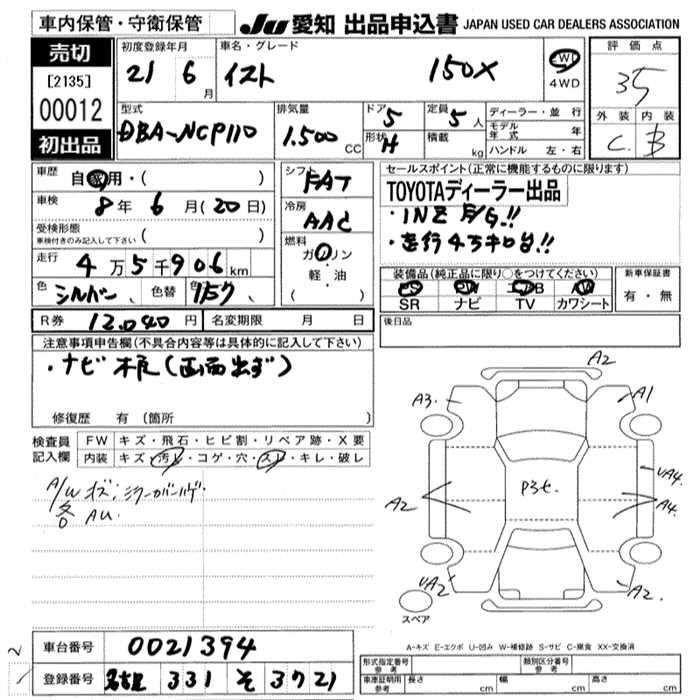 車内保管・守衛保管
JU 愛知 出品申込書 JAPAN USED CAR DEALERS ASSOCIATION
売切
[2135]
00012
初出品
初度登録年月
21 6月
車名・グレード
イスト 150X
2WD
4WD
評価点
3.5
外装 内装
C B
型式
DBA-NCP110
排気量
1.500 CC
ドア 5
形状 H
定員 5人
積載 kg
ディーラー・並行
モデル年式 年
ハンドル 左・右
車歴 自家用・( )
車検 8年 6月(20日)
受検形態
車検付きのみ記入して下さい ( )
走行 4万5千906km
色 シルバー 色替 色
シフト FAT
冷房 AAC
燃料
ガソリン
軽・油
( )
セールスポイント(正常に機能するものに限ります)
TOYOTAディーラー出品
・1NZ
・走行4万キロ台!!
装備品(純正品に限り○をつけてください)
PS PW エアB AW
SR ナビ TV カワシート
新車保証書
有・無
R券 12.040円
名変期限 月 日
後日品
注意事項申告欄(不具合内容等は具体的に記入して下さい)
・ナビ (画面出ず)
修復歴 有(箇所 )
検査員記入欄
FW キズ・飛石・ヒビ割・リペア跡・X要
内装 キズ・汚レ・コゲ・穴・スレ・キレ・破レ
A/Wキズ
各AU.
A2
A3
A1
A2
UA4
A4
UA2
A2
スペア
A-キズ E-エクボ U-凹み W-補修跡 S-サビ C-腐食 XX-交換済
車台番号 0021394
登録番号 331 そ 3721
形式指定番号 参考
類別区分番号 参考
車庫証明用 参考 長さ cm 幅 cm 高さ cm